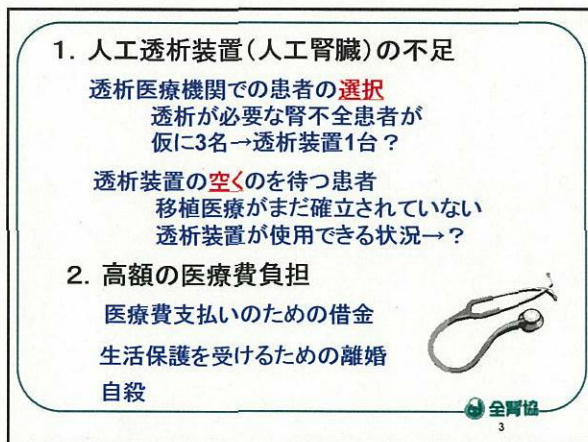 1. 人工透析装置(人工腎臓)の不足
透析医療機関での患者の選択
透析が必要な腎不全患者が
仮に3名→透析装置1台?
透析装置の空くのを待つ患者
移植医療がまだ確立されていない
透析装置が使用できる状況→?
2. 高額の医療費負担
医療費支払いのための借金
生活保護を受けるための離婚
自殺
全腎協
3